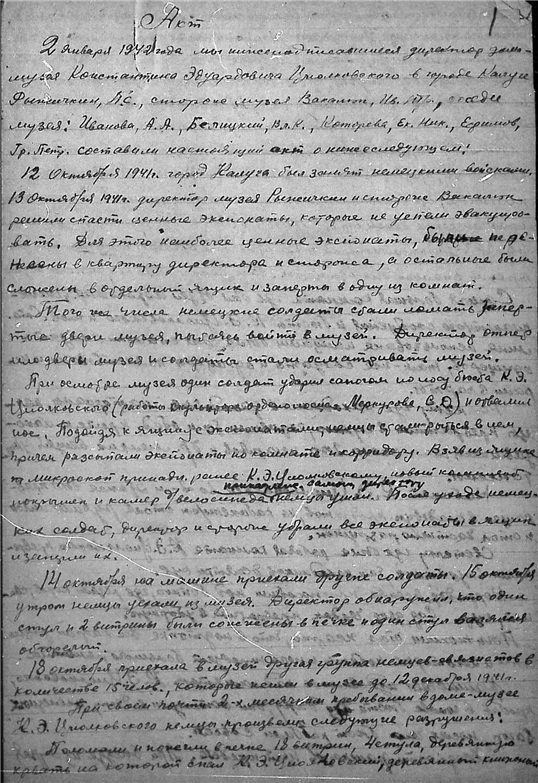 Акт
2 января 1942 года мы нижеподписавшиеся директор дома-
музея Константина Эдуардовича Циолковского в городе Калуге
сторож музея соседи
музея: Иванова, А.А., Белицкий, Вл.К., Которева, Ек. Ник., Ефимов,
Гр. Петр. составили настоящий акт о нижеследующем:
12 октября 1941г. город Калуга был занят немецкими войсками.
13 октября 1941г. директор музея и сторож
решили спасти ценные экспонаты, которые не успели эвакуиро-
вать. Для этого наиболее ценные экспонаты,
в квартиру директора и сторожа, а остальные были
сложены в отдельный ящик и заперты в одну из комнат.
Того же числа немецкие солдаты стали ломать запер-
тые двери музея, пытаясь войти в музей. Директор отпер
двери музея и солдаты стали осматривать музей.
При осмотре музея один солдат ударил сапогом по носу бюста К.Э.
Циолковского (работы скульптора орденоносца Меркурова, С.Д.) и отвалил
нос. Подойдя к ящику с экспонатами немцы стали рыться в нем,
причем разсыпали экспонаты по комнате и корридору. Взяв из ящика
микроскоп принадл. ранее К.Э. Циолковскому, новый
покрышек и камер д/велосипеда немцы ушли. После ухода немец-
ких солдат, директор и сторож убрали все экспонаты в ящик
и заперли их.
14 октября на машине приехали другие солдаты. 15 октября
утром немцы уехали из музея. Директор обнаружил, что один
стул и 2 витрины были сожжены в печке и один стул валялся
обгорелый.
18 октября приехала в музей другая группа немцев-связистов в
количестве 15 челов., которые жили в музее до 12 декабря 1941г.
При своем почти 2-х месячном пребывании в доме-музее
К.Э. Циолковского немцы произвели следующие разрушения:
Поломали и пожгли в печке 18 витрин, 4 стула, деревянную
кровать на которой спал К.Э. Циолковский, деревянный